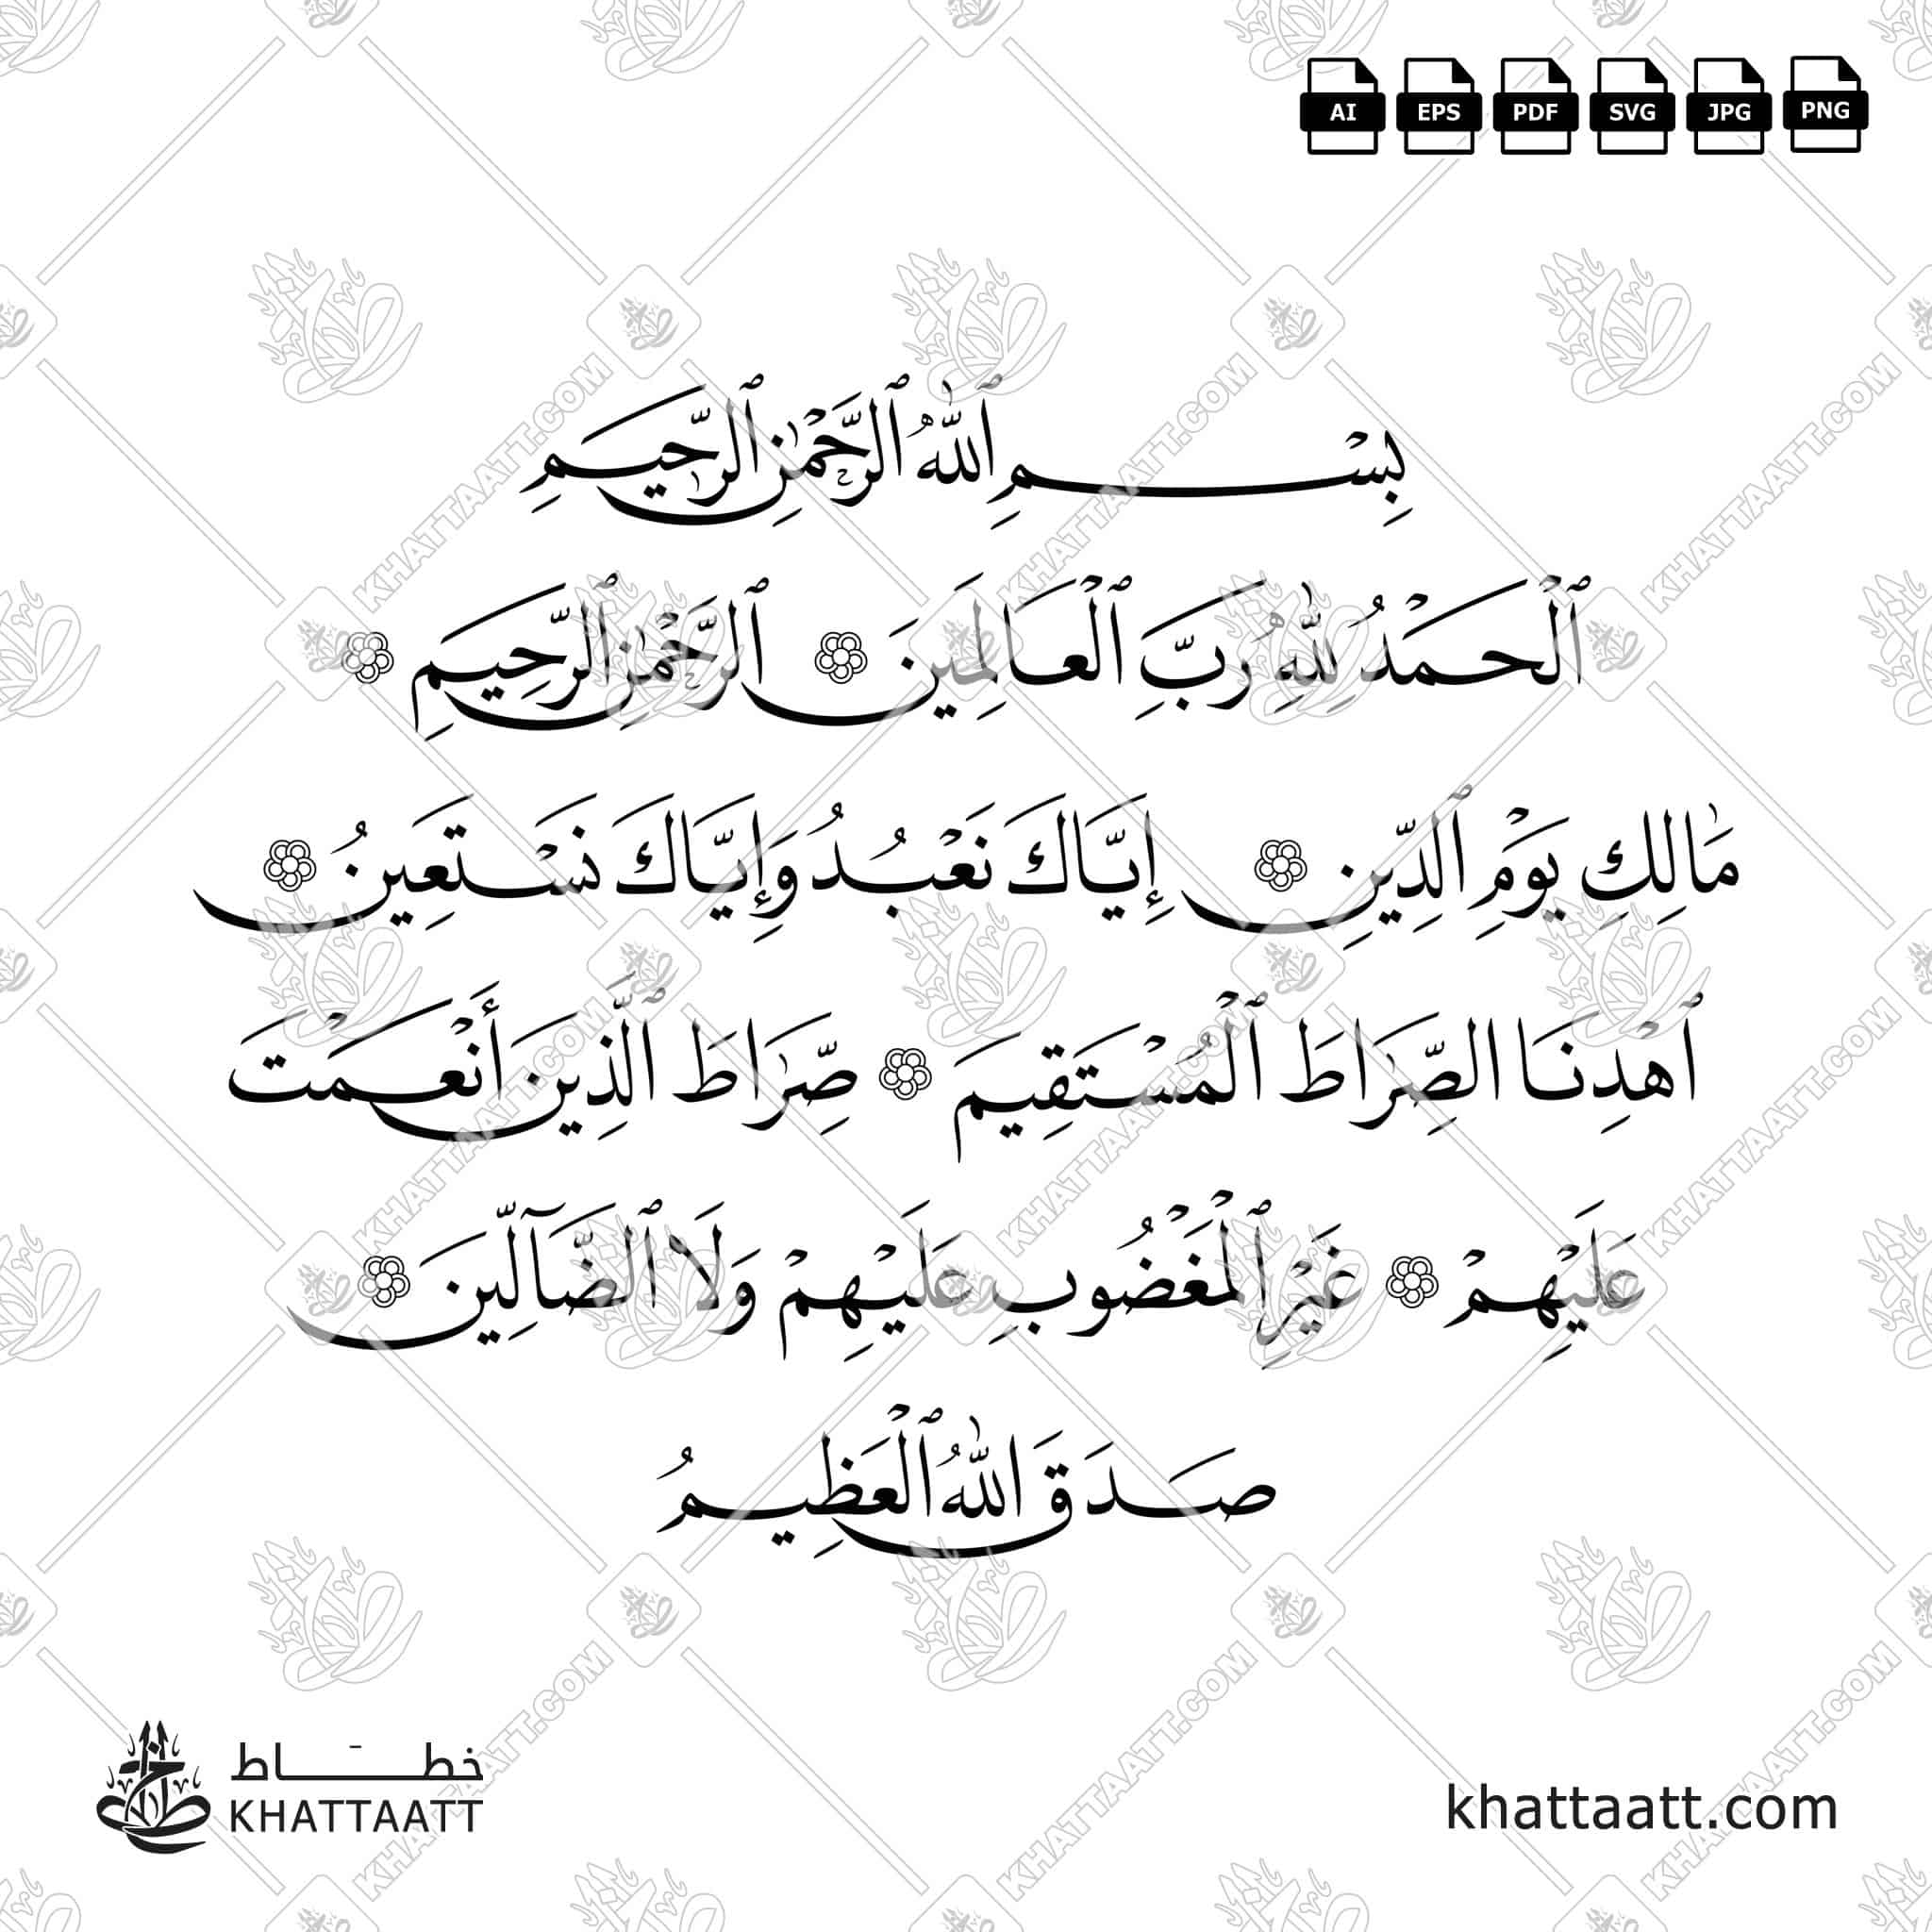 AI EPS PDF SVG JPG PNG
بِسْمِ ٱللَّهِ ٱلرَّحْمَٰنِ ٱلرَّحِيمِ
ٱلْحَمْدُ لِلَّهِ رَبِّ ٱلْعَالَمِينَ ٱلرَّحْمَٰنِ ٱلرَّحِيمِ
مَالِكِ يَوْمِ ٱلدِّينِ إِيَّاكَ نَعْبُدُ وَإِيَّاكَ نَسْتَعِينُ
ٱهْدِنَا الصِّرَاطَ ٱلْمُسْتَقِيمَ صِرَاطَ ٱلَّذِينَ أَنْعَمْتَ
عَلَيْهِمْ غَيْرِ ٱلْمَغْضُوبِ عَلَيْهِمْ وَلَا ٱلضَّآلِّينَ
صَدَقَ اللَّهُ ٱلْعَظِيمُ
خطَّاط
KHATTAATT
khattaatt.com